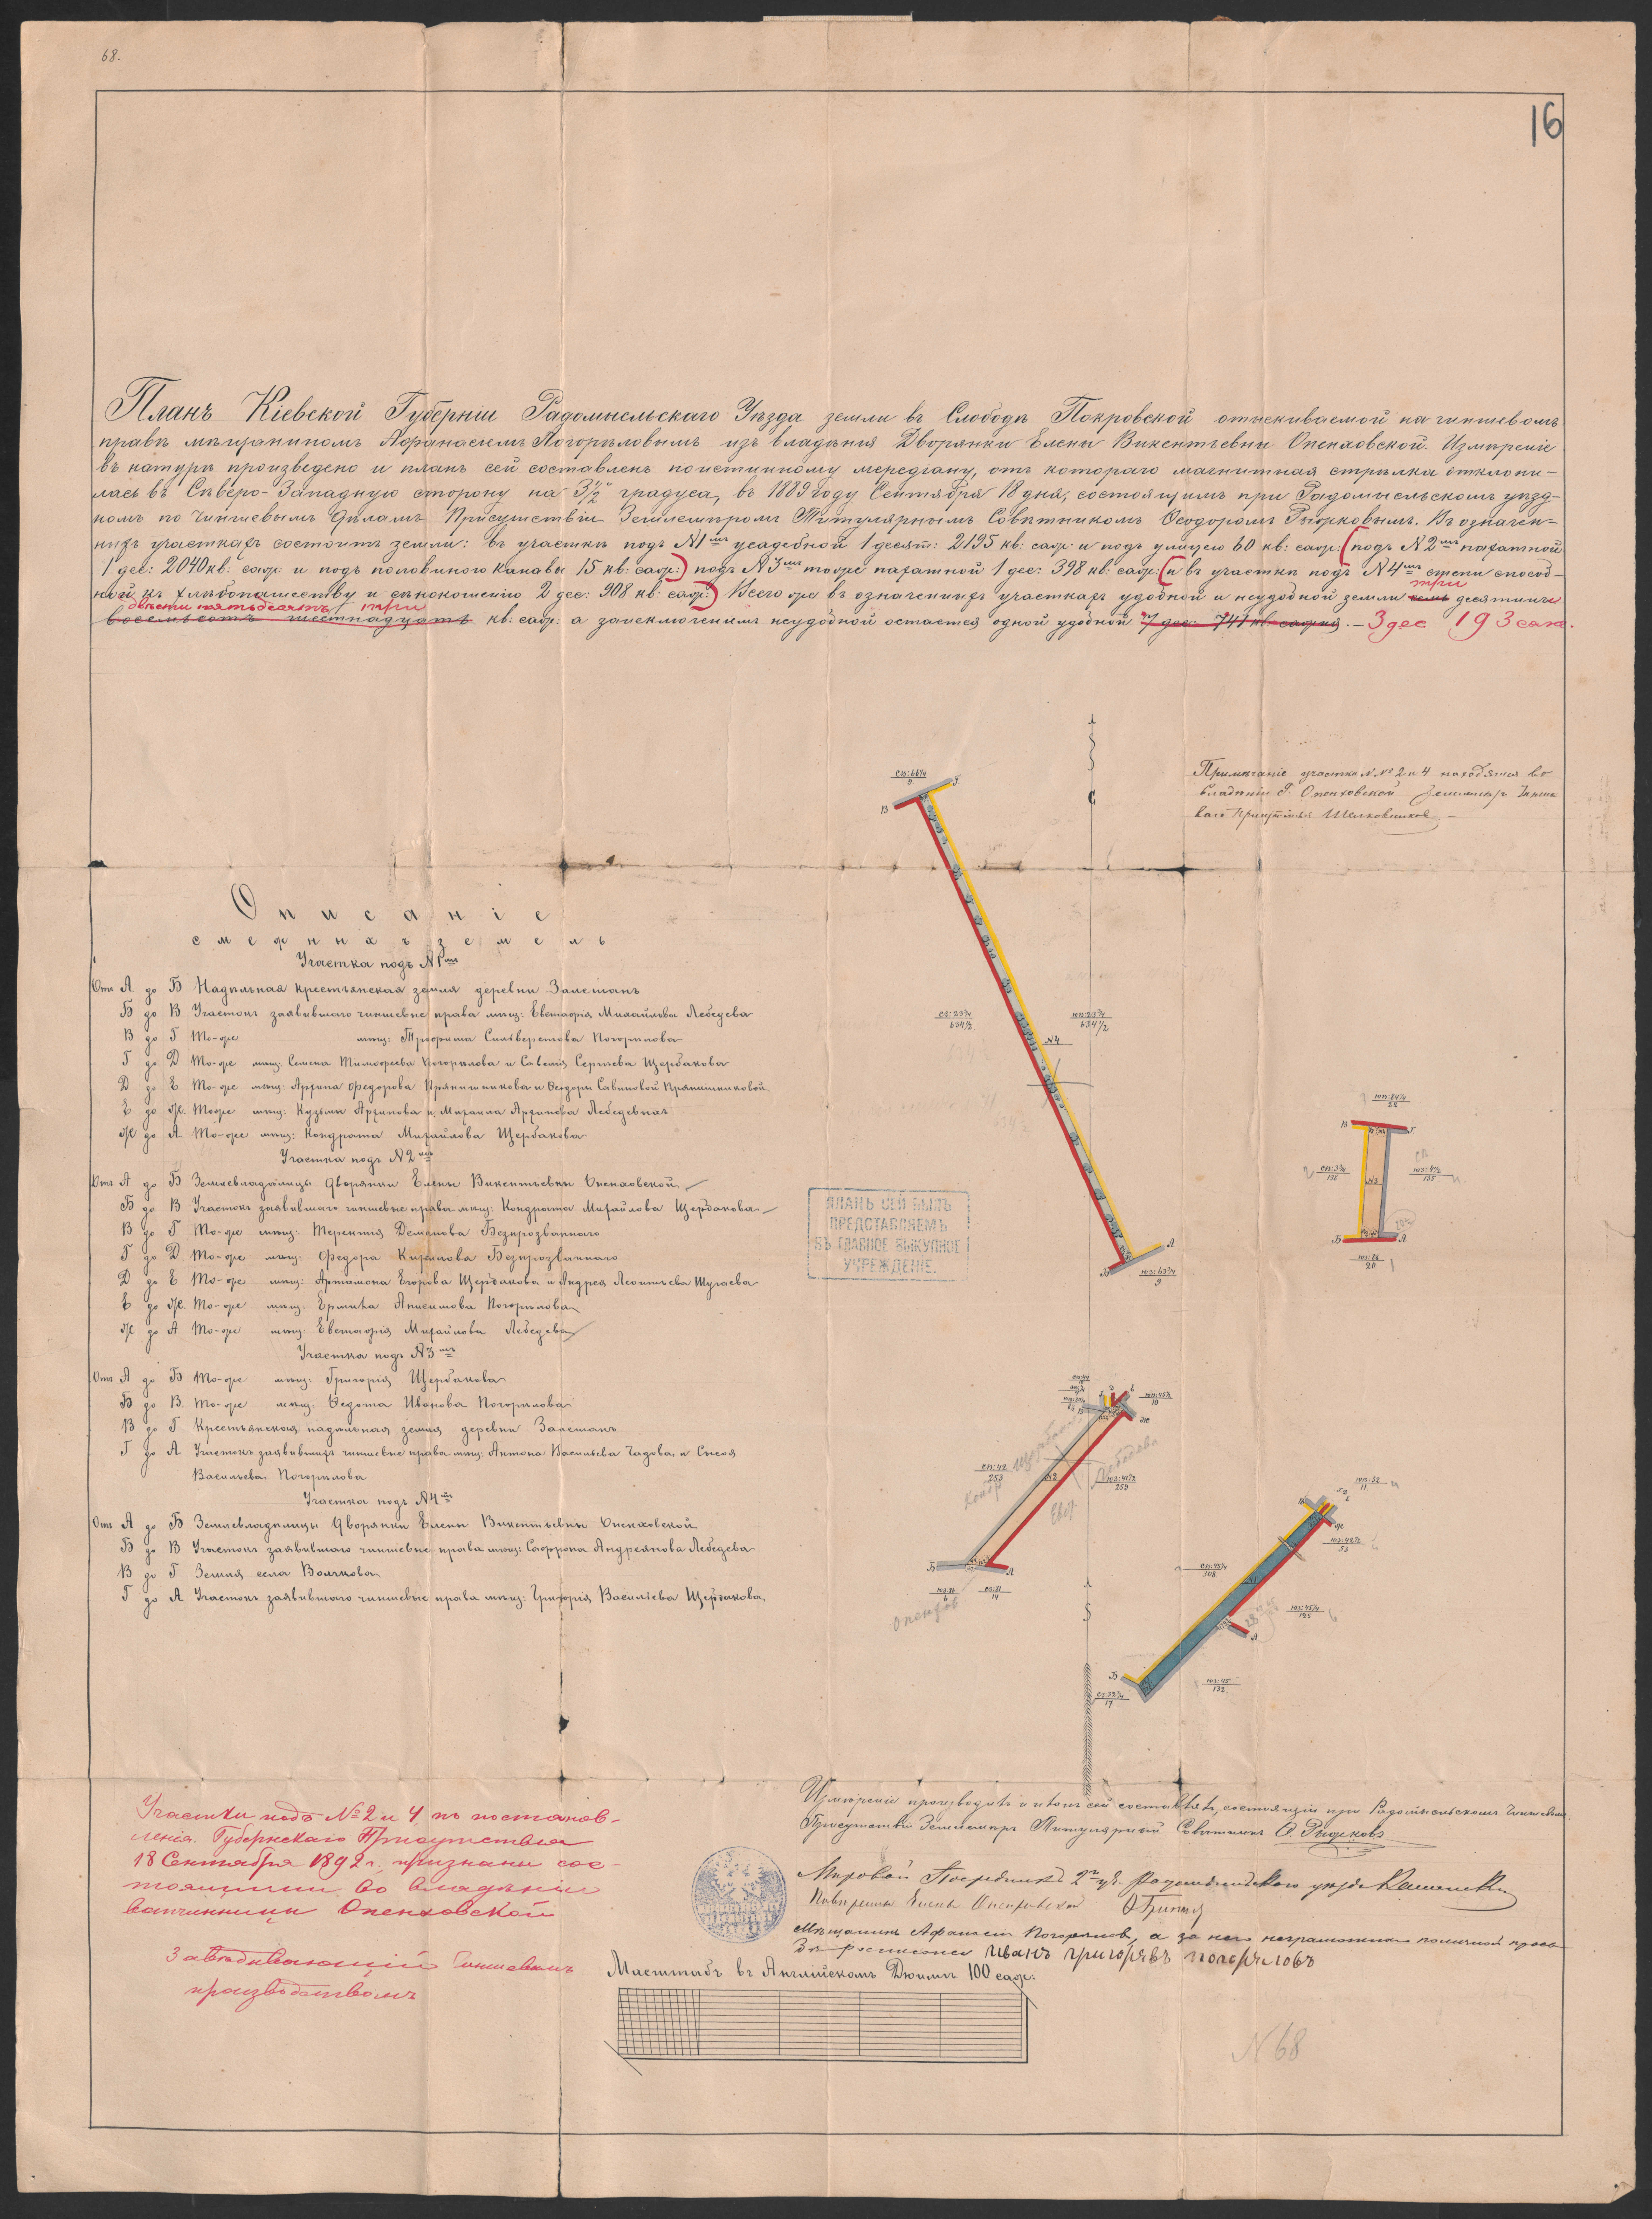 68.
16
Планъ Кіевской Губерніи Радомысльскаго Уѣзда земли въ Слободѣ Покровской отыскиваемой на чиншевомъ
правѣ мѣщаниномъ Афанасіемъ Погорѣловымъ изъ владѣнія Дворянки Елены Викентьевны Опенховской. Измѣреніе
въ натурѣ произведено и планъ сей составленъ по истинному меридіану, отъ котораго магнитная стрѣлка отклони-
лась въ Сѣверо-Западную сторону на 3½° градуса, въ 1889 году Сентября 18 дня, состоящимъ при Радомысльскомъ уѣзд-
номъ по Чиншевымъ Дѣламъ Присутствіи Землемѣромъ Титулярнымъ Совѣтникомъ Ѳеодоромъ. Въ означен-
ныхъ участкахъ состоитъ земли: въ участкѣ подъ №1мъ усадебной 1 десят: 2195 кв: саж: и подъ улицею 60 кв: саж: (подъ №2мъ пахатной
1 дес: 2040 кв: саж: и подъ половиною канавы 15 кв: саж:) подъ №3мъ тоже пахатной 1 дес: 398 кв: саж: (и въ участкѣ подъ №4мъ степи способ-
ной къ хлѣбопашеству и сѣнокошенію 2 дес: 908 кв: саж:) Всего же въ означенныхъ участкахъ удобной и неудобной земли семь три десятины
двѣсти пятьдесятъ три
восемьсотъ шестнадцать кв: саж: а заисключеніемъ неудобной остается одной удобной 7 дес: 741 кв. сажня. — 3 дес 193 саж.
Примѣчаніе участки №№ 2 и 4 находятся во
владѣніи Г. Опенховской Землемѣръ Чинше
ваго Присутствія Шелковников
С
Описаніе
смежныхъ земель
Участка подъ №1мъ
Отъ А до Б Надѣльная крестьянская земля деревни Залешанъ
Б до В Участокъ заявившаго чиншевые права мѣщ: Евстафія Михайлова Лебедева
В до Г То-же мѣщ: Трофима Силиверстова Погорѣлова
Г до Д То-же мѣщ: Семена Тимофеева Погорѣлова и Савелія Сергѣева Щербакова
Д до Е То-же мѣщ: Архипа Федорова Прянишникова и Ѳеодоры Савиновой Прянишниковой
Е до Ж. Тоже мѣщ: Кузьмы Архипова и Михаила Архипова Лебедевыхъ
Ж до А То-же мѣщ: Кондрата Михайлова Щербакова
Участка подъ №2мъ
Отъ А до Б Землевладѣлицы Дворянки Елены Викентьевны Опенховской
Б до В Участокъ заявившаго чиншевые права мѣщ: Кондрата Михайлова Щербакова
В до Г То-же мѣщ: Терентія Деменова Безпрозваннаго
Г до Д То-же мѣщ: Федора Кирилова Безпрозваннаго
Д до Е То-же мѣщ: Артамона Егорова Щербакова и Андрея Леонтьева Шугаева
Е до Ж. То-же мѣщ: Ермила Анисимова Погорѣлова
Ж до А То-же мѣщ: Евстафія Михайлова Лебедева
Участка подъ №3мъ
Отъ А до Б То-же мѣщ: Григорія Щербакова
Б до В. То-же мѣщ: Ѳедота Иванова Погорѣлова
В до Г Крестьянская надѣльная земля деревни Залешанъ
Г до А Участокъ заявившихъ чиншевые права мѣщ: Антона Васильева Чадова и Сысоя
Васильева Погорѣлова
Участка подъ №4мъ
Отъ А до Б Землевладѣлицы Дворянки Елены Викентьевны Опенховской
Б до В Участокъ заявившаго чиншевые права мѣщ: Софрона Андреянова Лебедева
В до Г Земля села Волчкова
Г до А Участокъ заявившаго чиншевые права мѣщ: Григорія Васильева Щербакова
ПЛАНЪ СЕЙ БЫЛЪ
ПРЕДСТАВЛЯЕМЪ
ВЪ ГЛАВНОЕ ВЫКУПНОЕ
УЧРЕЖДЕНІЕ.
№4
Участки подъ № 2 и 4 по постанов-
ленію Губернскаго Присутствія
18 Сентября 1892 г. признаны сос-
тоящими во владѣніи
вотчинницы Опенховской
Завѣдывающій Чиншевымъ
производствомъ
Измѣреніе производилъ и планъ сей составлялъ, состоящій при Радомысльскомъ Чиншевомъ
Присутствіи Землемѣръ Титулярный Совѣтникъ
Мировой Посредникъ 2го уч. Радомысльскаго уѣзда
Повѣренный Елены Опенховской
Мѣщанинъ Афанасій Погорѣловъ, а за него неграмотнаго по личной прось
бѣ росписался Иванъ Григорьевъ Погорѣловъ
Масштабъ въ Англійскомъ Дюймѣ 100 саж:
N 68